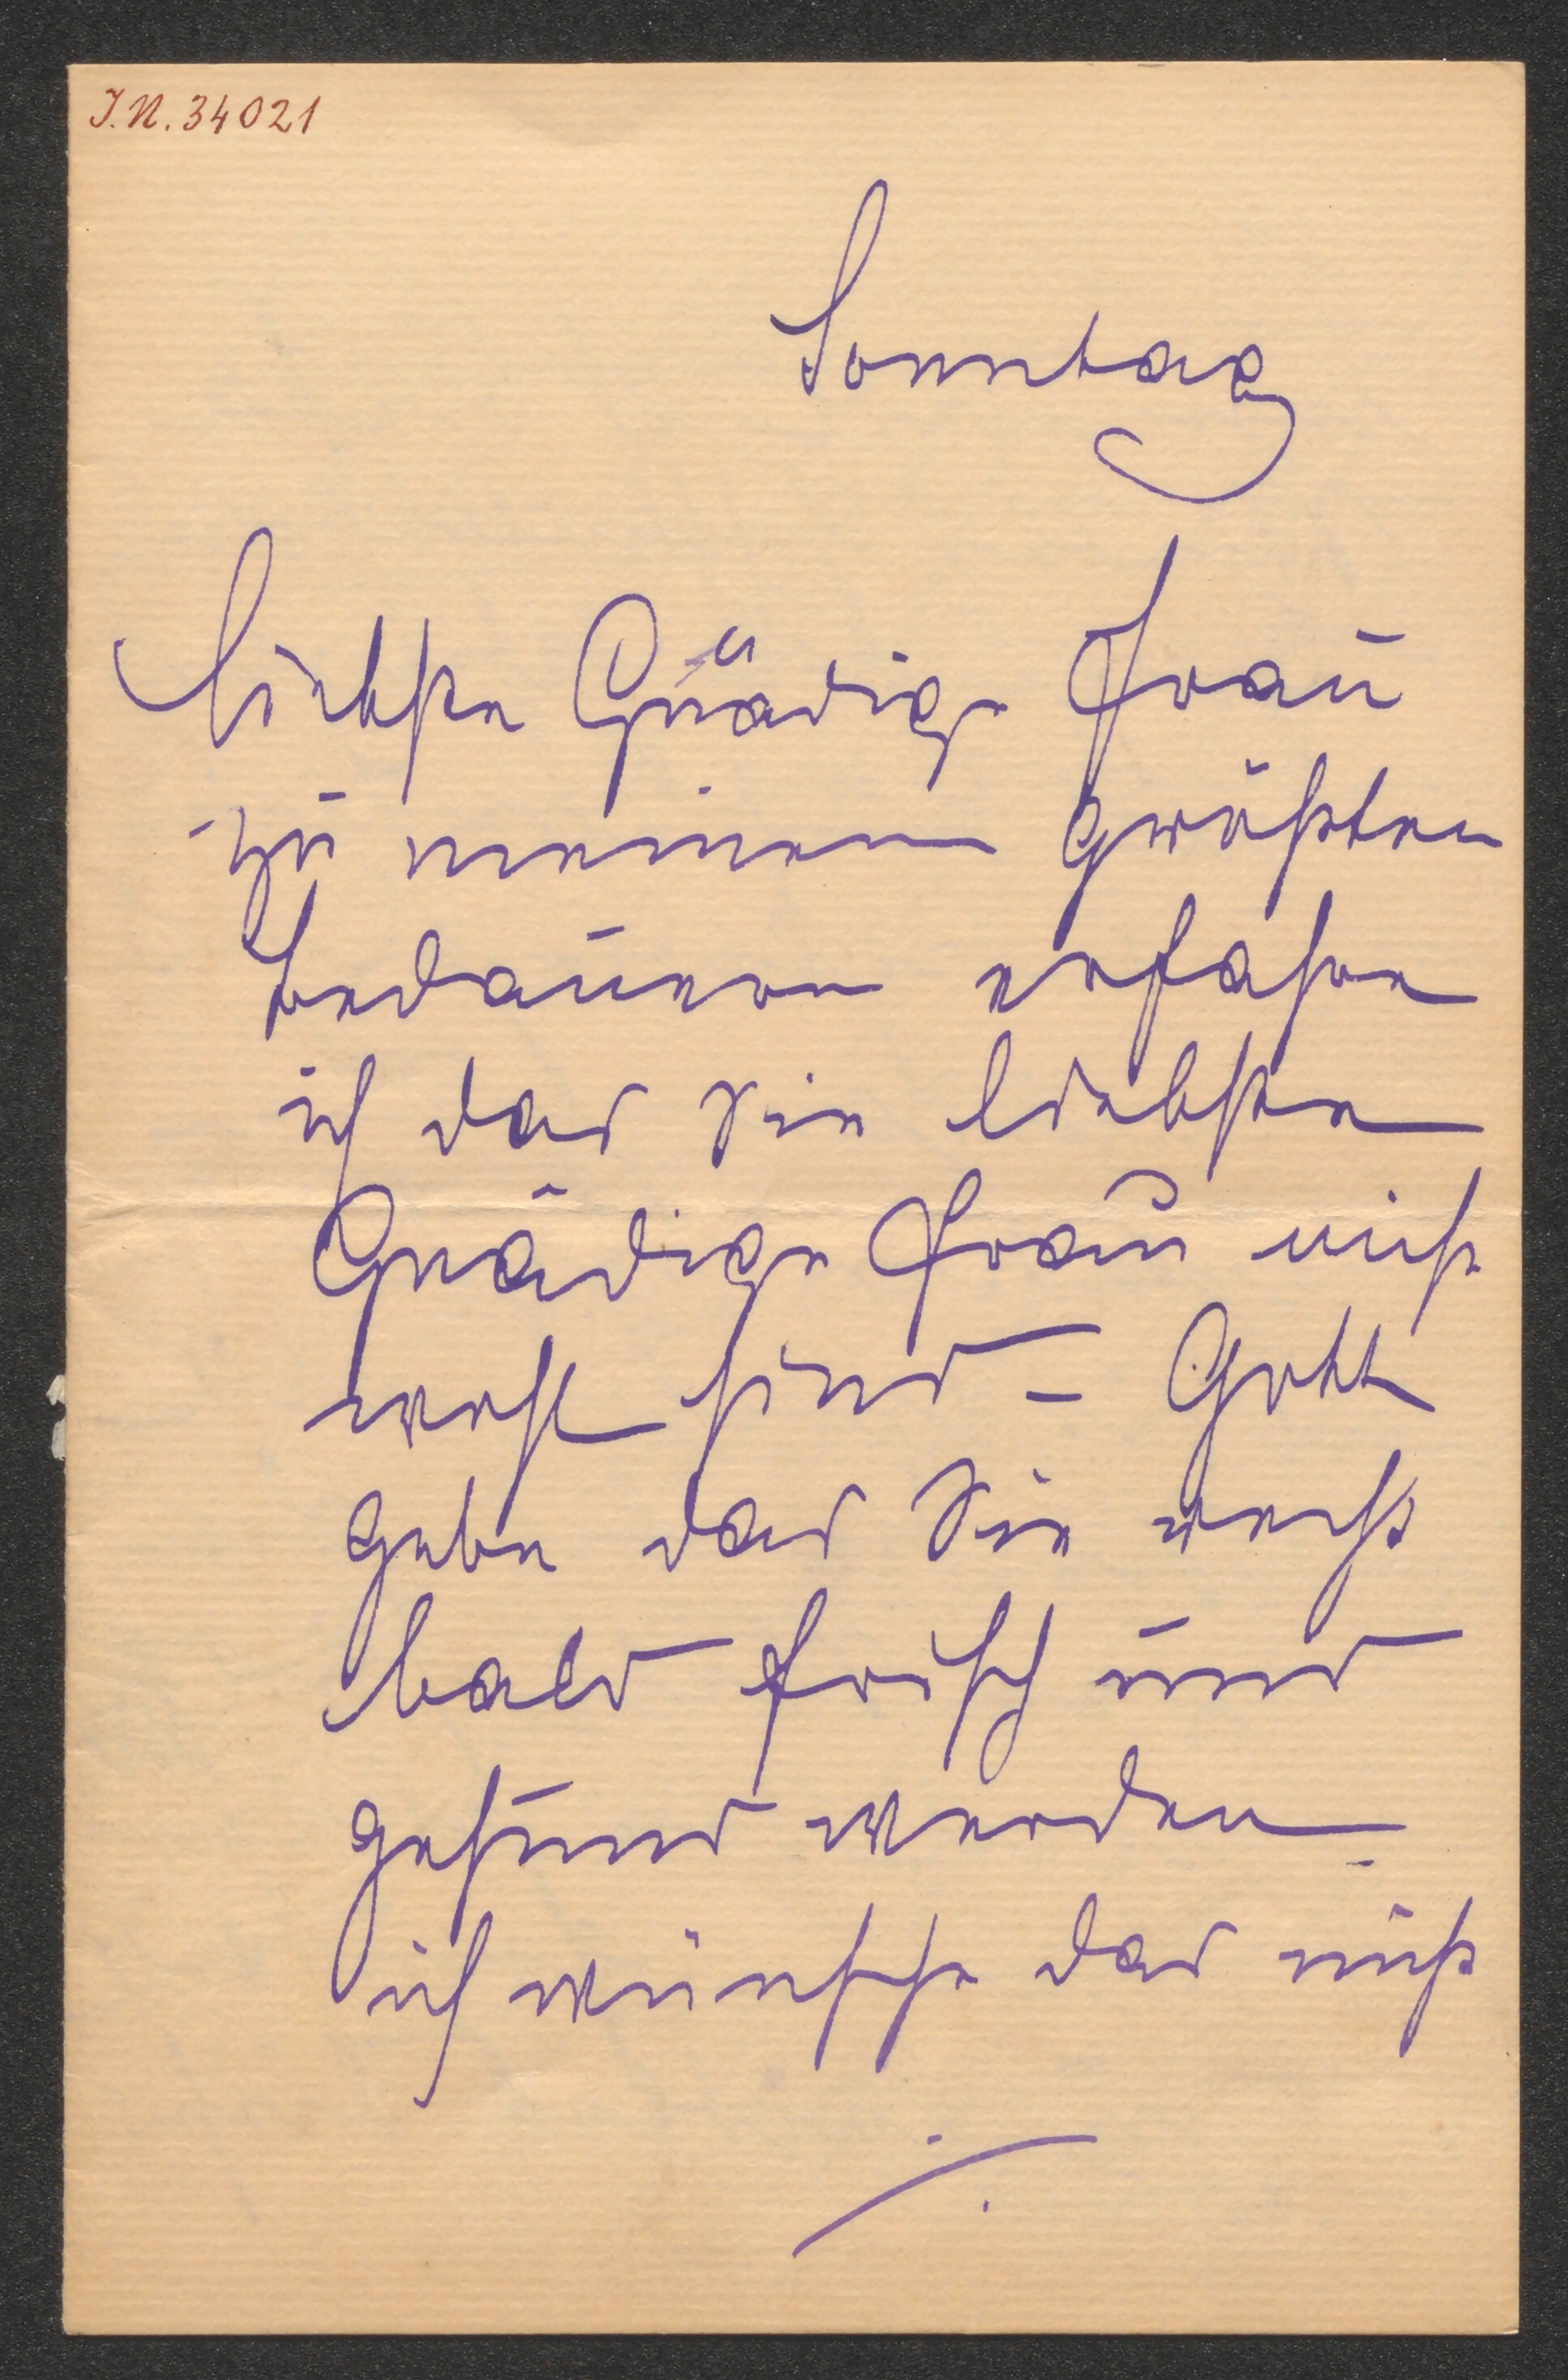 J.N. 34021
Sonntag
Liebste Gnädige Frau
zu meinem größten
bedauern erfahre
ich das Sie liebste
Gnädige Frau nicht
wohl sind – Gott
gebe das Sie recht
bald frisch und
gesund werden
ich wünsche das nicht